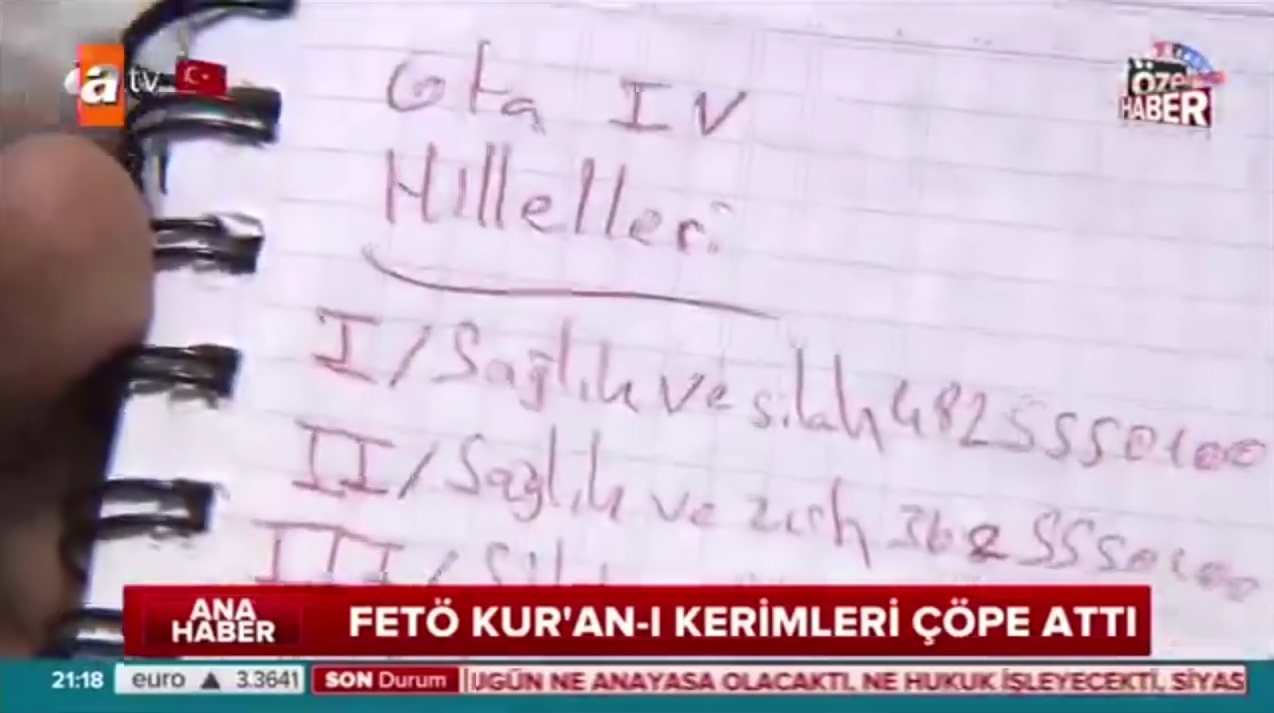 a tv
ÖZEL
HABER
Gta IV
Hıllelleri
I/Sağlık ve silah 4825550100
II/Sağlık ve zırh 3625550100
III/
ANA
HABER
FETÖ KUR'AN-I KERİMLERİ ÇÖPE ATTI
21:18 euro ▲ 3.3641 SON Durum UGÜN NE ANAYASA OLACAKTI, NE HUKUK İŞLEYECEKTİ, SİYAS